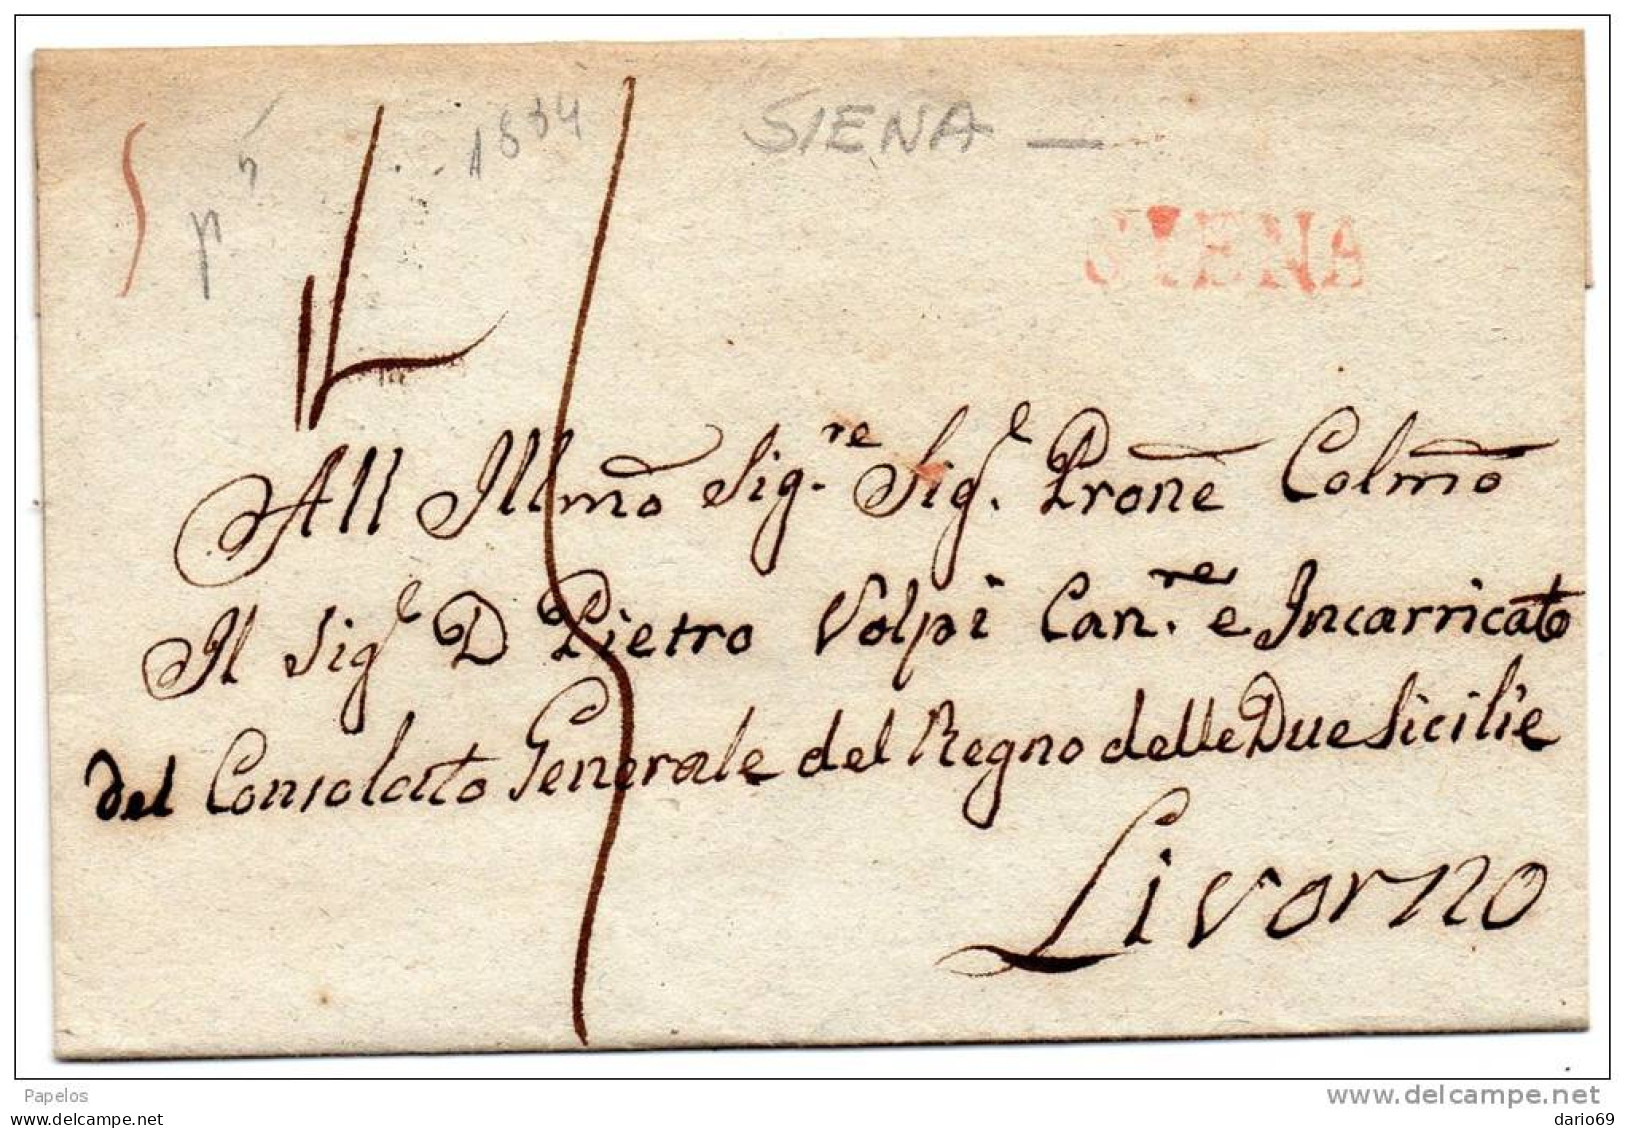 1834
SIENA
SIENA
All Illmo Sig.re Sig.e Prone Colmo
Il Sig.e D Pietro Volpi Can.re e Incarricato
del Consolato Generale del Regno delle Due Sicilie
Livorno
Papelos
www.delcampe.net
dario69